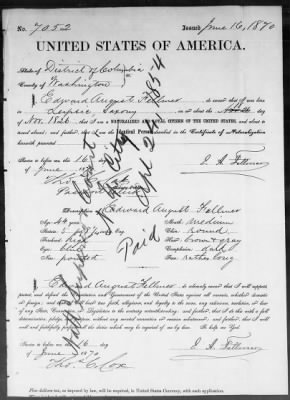 No. 7052 Issued June 16, 1870
UNITED STATES OF AMERICA.
State of District of Columbia
County of Washington
I, Edward August Fellner, do swear that I was
born in Leipsic, Saxony on or about the day
of Nov. 1826, that I am a NATURALIZED AND LOYAL CITIZEN OF THE UNITED STATES,
and about to travel abroad; and further, that I am the Identical Person described in the Certificate of Naturalization
herewith presented.
Sworn to before me this 16
day of June
E. A. Fellner
Description of Edward August Fellner
Age: 44 years Mouth: medium
Stature: 5 ft Chin: round
Forehead: high Hair: brown & gray
Eyes: blue Complexion: dark
Nose: pointed Face: rather long
I, Edward August Fellner do solemnly swear that I will support,
protect and defend the Constitution and Government of the United States against all enemies, whether domestic
or foreign; and that I will bear true faith, allegiance and loyalty to the same, any ordinance, resolution, or law
of any State, Convention, or Legislature to the contrary notwithstanding; and further, that I do this with a full
determination, pledge, and purpose, without any mental reservation or evasion whatsoever; and further, that I will
well and faithfully perform all the duties which may be required of me by law. So help me God.
Sworn to before me this 16
day of June 1870
E. A. Fellner
Thos. C. Cox
Five dollars tax, as imposed by law, will be required, in United States Currency, with each application.
Court
City
1854
Paid